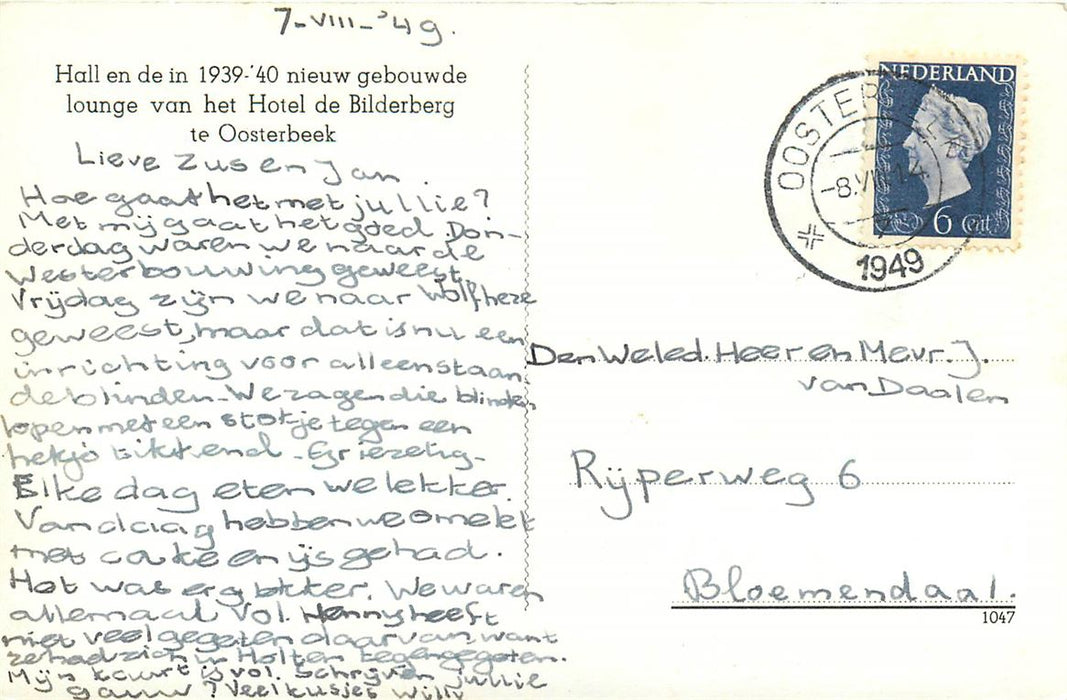 7-VIII-'49.
Hall en de in 1939-'40 nieuw gebouwde
lounge van het Hotel de Bilderberg
te Oosterbeek
Lieve Zus en Jan.
Hoe gaat het met jullie?
Met mij gaat het goed. Don-
derdag waren we naar de
Westerbouwing geweest
Vrijdag zijn we naar Wolfheze
geweest, maar dat is nu een
inrichting voor alleenstaan-
de blinden. We zagen die blinden
lopen met een stokje tegen een
hekje tikkend. Griezelig.
Elke dag eten we lekker.
Vandaag hebben we omelet
met cake en ijs gehad.
Het was erg lekker. We waren
allemaal vol. Henny heeft
niet veel gegeten daarvan want
ze had zich in Holten tegengegeten.
Mijn kaart is vol. Schrijven jullie
gauw? Veel kusjes Willy
NEDERLAND
6 Cent
OOSTERBEEK
-8.VIII.14
1949
Den Weled. Heer en Mevr. J.
van Daalen
Rijperweg 6
Bloemendaal.
1047